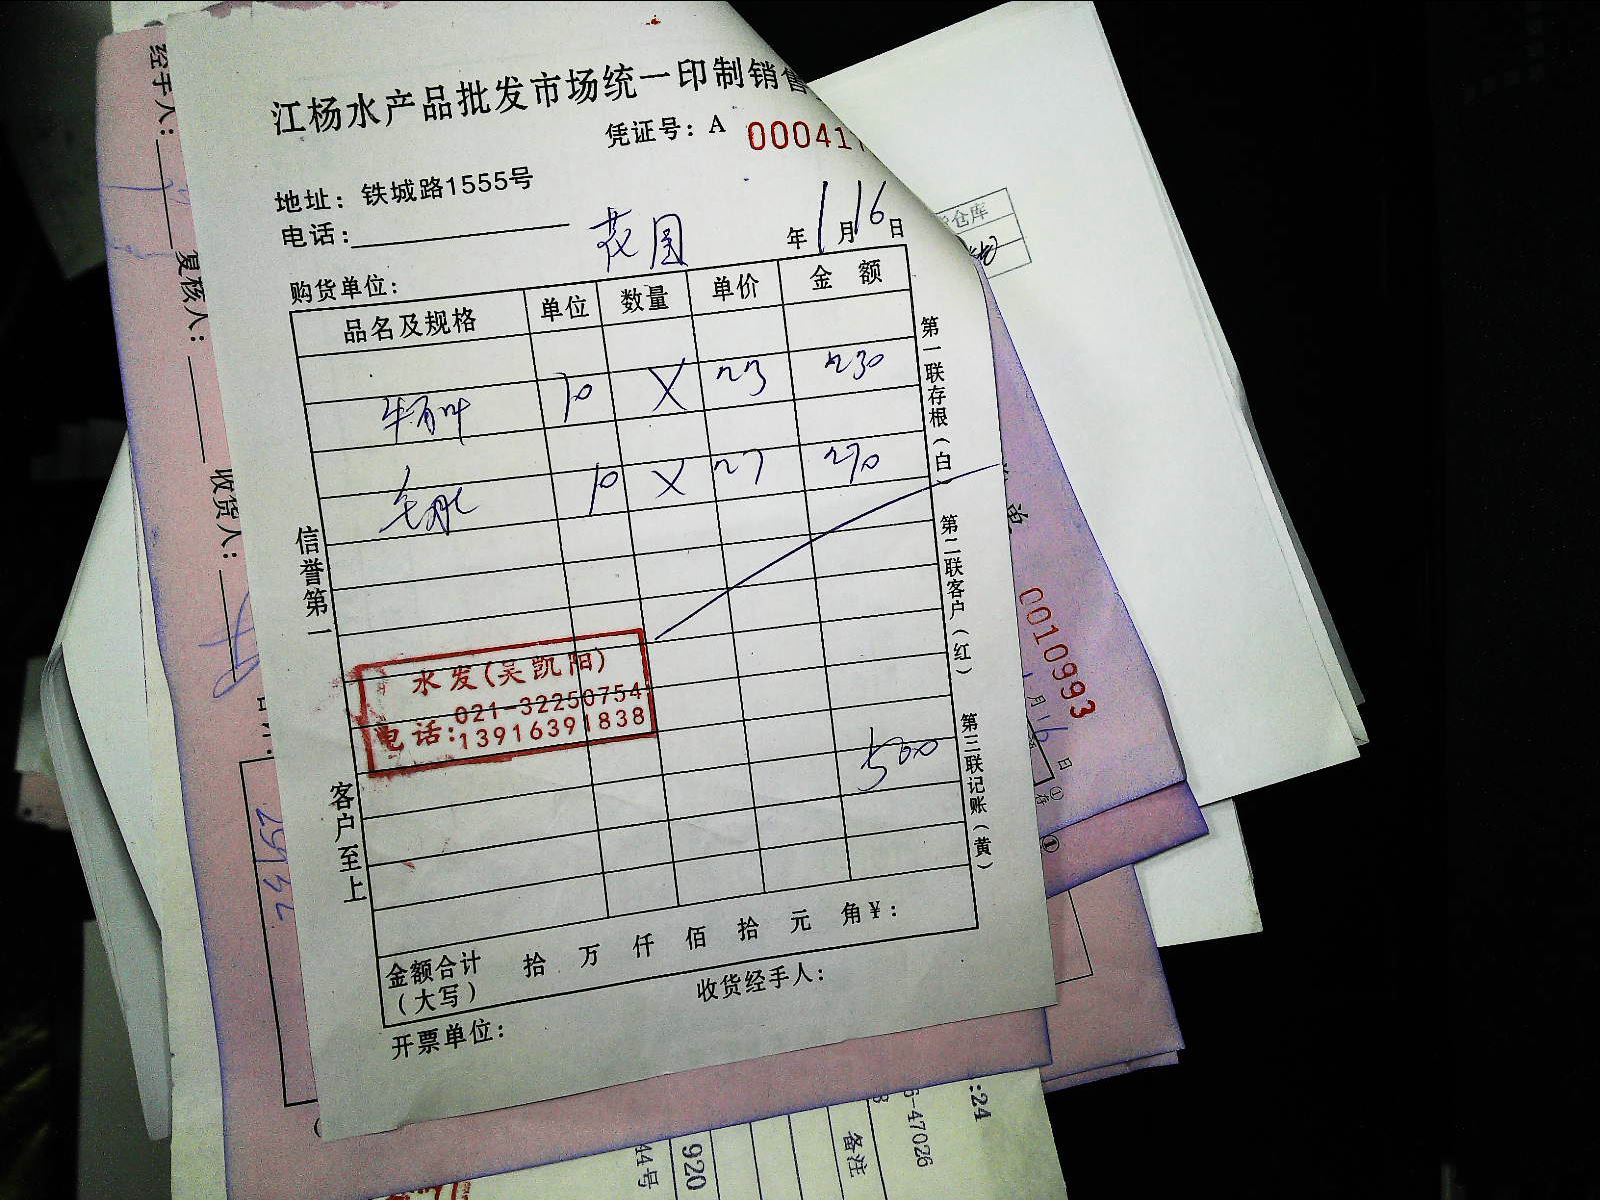 江杨水产品批发市场统一印制销售
凭证号：A 00041
地址：铁城路1555号
电话：
花园
年 1 月 16 日
购货单位：
品名及规格 单位 数量 单价 金 额
牛百叶 10 X 23 230
毛肚 10 X 27 270
500
水发(吴凯阳)
电话:021-32250754
13916391838
金额合计 拾 万 仟 佰 拾 元 角¥：
（大写）
收货经手人：
开票单位：
信誉第一
客户至上
第一联存根（白）
第二联客户（红）
第三联记账（黄）
经手人：
复核人：
收货人：
仓库
0010993
月 16 日
:24
6-47026
备注
920
44号